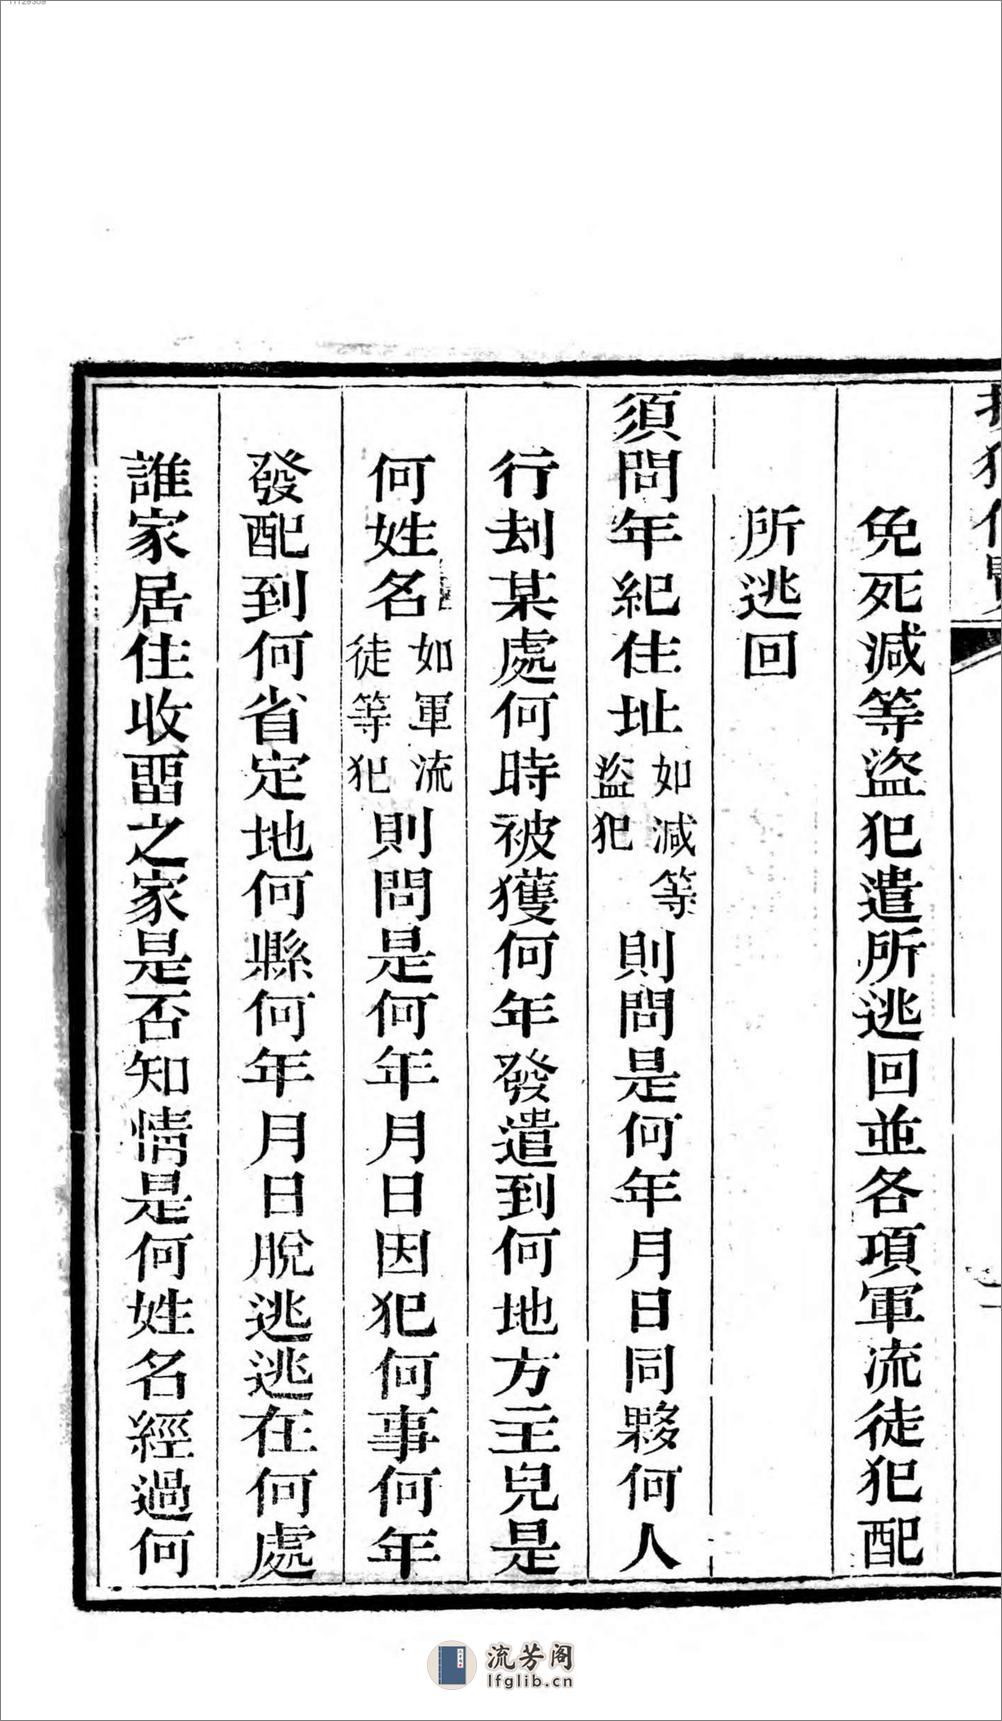 免死減等盜犯遣所逃回並各項軍流徒犯配
所逃回
須問年紀住址如减等盜犯則問是何年月日同夥何人
行刦某處何時被獲何年發遣到何地方主兒是
何姓名如軍流徒等犯則問是何年月日因犯何事何年
發配到何省定地何縣何年月日脫逃逃在何處
誰家居住收畱之家是否知情是何姓名經過何
流芳阁
lfglib.cn